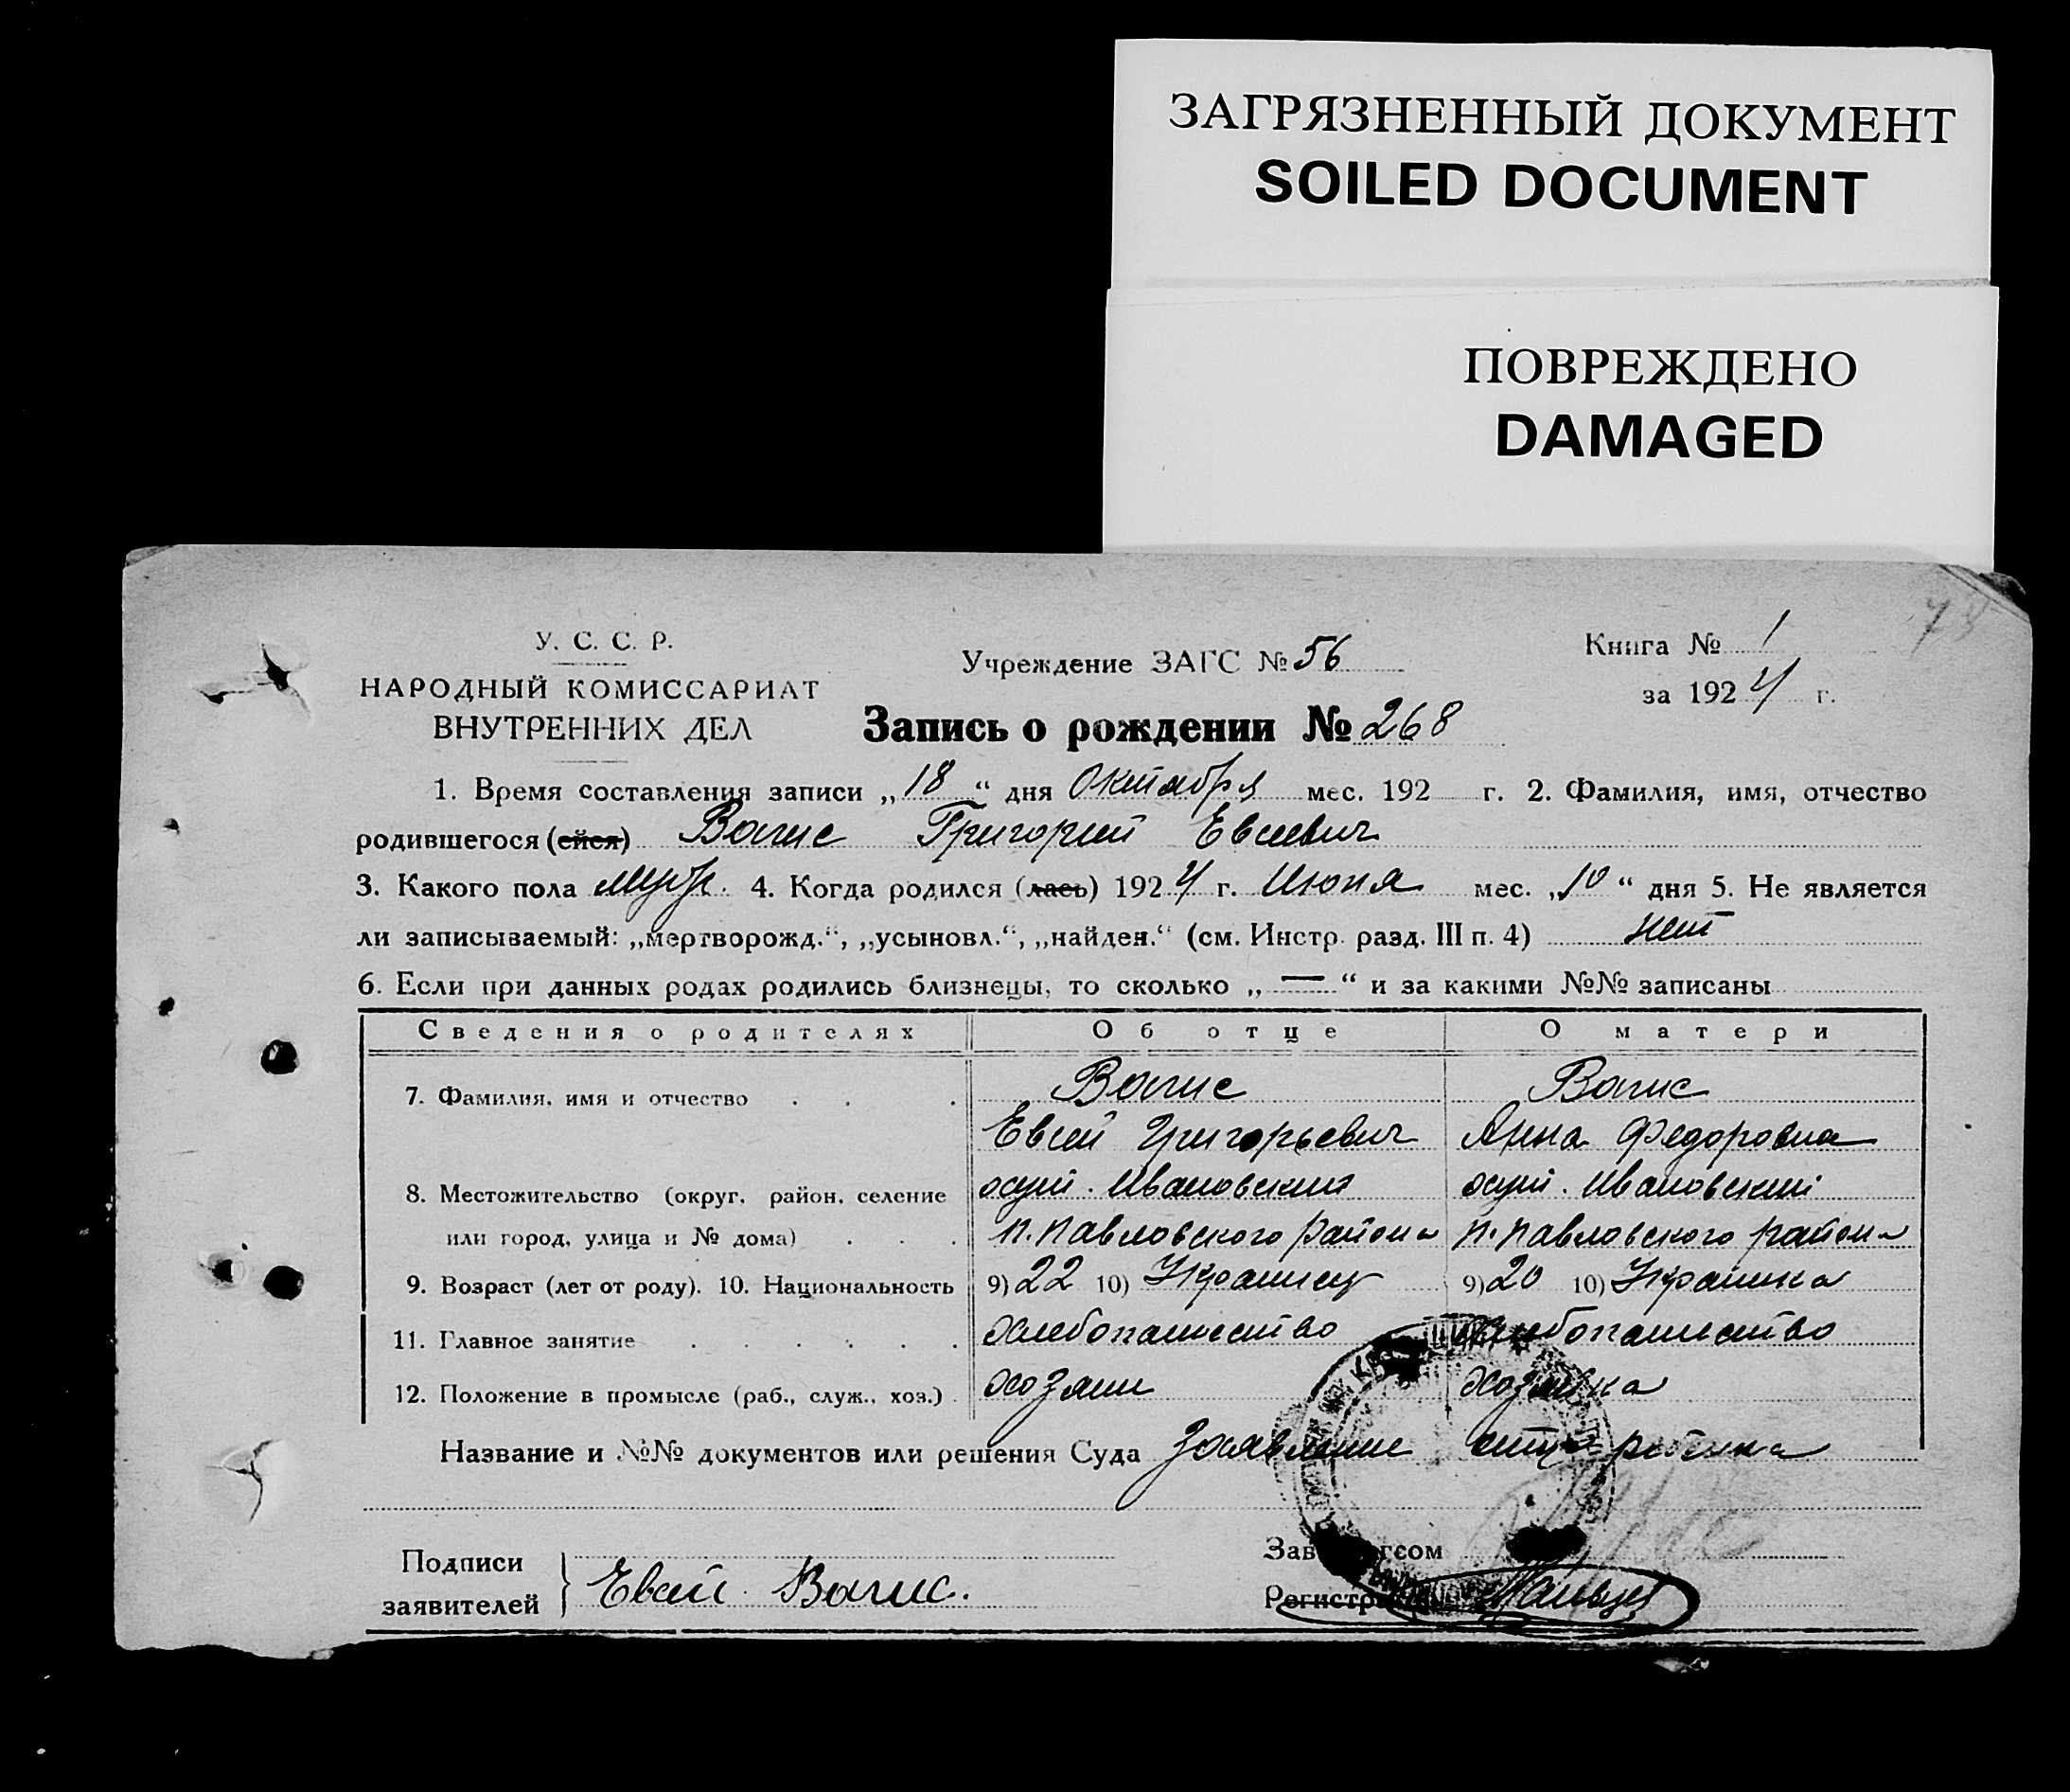 ЗАГРЯЗНЕННЫЙ ДОКУМЕНТ
SOILED DOCUMENT
ПОВРЕЖДЕНО
DAMAGED
У. С. С. Р.
НАРОДНЫЙ КОМИССАРИАТ
ВНУТРЕННИХ ДЕЛ
Учреждение ЗАГС № 56
Книга № 1
за 1924 г.
Запись о рождении № 268
1. Время составления записи „18“ дня Октября мес. 192 г. 2. Фамилия, имя, отчество
родившегося (ейся) Вагис Григорий Евсиевич
3. Какого пола муж. 4. Когда родился (лась) 1924 г. Июня мес. „10“ дня 5. Не является
ли записываемый: „мертворожд.“, „усыновл.“, „найден.“ (см. Инстр. разд. III п. 4) нет
6. Если при данных родах родились близнецы, то сколько „—“ и за какими №№ записаны
Сведения о родителях Об отце О матери
7. Фамилия, имя и отчество Вагис Вагис
Евсей Григорьевич Анна Федоровна
8. Местожительство (округ, район, селение хут. Ивановский хут. Ивановский
или город, улица и № дома) Н.Павловского района Н.Павловского района
9. Возраст (лет от роду). 10. Национальность 9) 22 10) Украинец 9) 20 10) Украинка
11. Главное занятие хлебопашество хлебопашество
12. Положение в промысле (раб., служ., хоз.) хозяин хозяйка
Название и №№ документов или решения Суда Заявление отца ребенка
Подписи
заявителей Евсей Вагис.